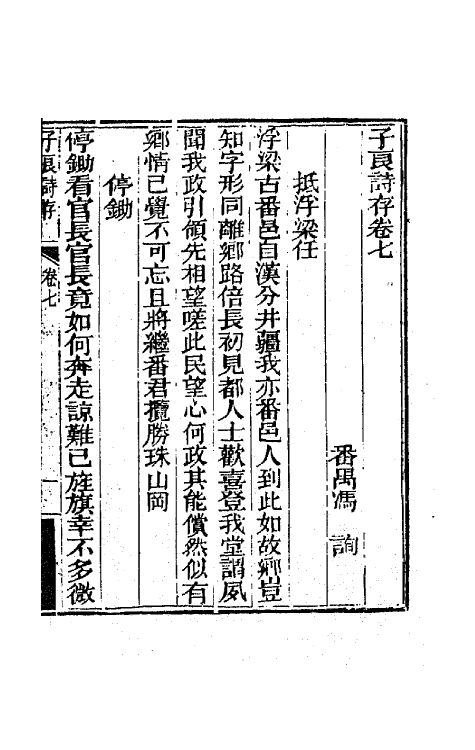 子良詩存卷七
番禺馮　詢
抵浮梁任
浮梁古番邑自漢分井疆我亦番邑人到此如故鄉豈
知字形同離鄉路倍長初見都人士歡喜登我堂謂夙
聞我政引領先相望嗟此民望心何政其能償然似有
鄉情已覺不可忘且將繼番君攬勝珠山岡
停鋤
停鋤看官長官長竟如何奔走諒難已旌旗幸不多微
子良詩存
卷七